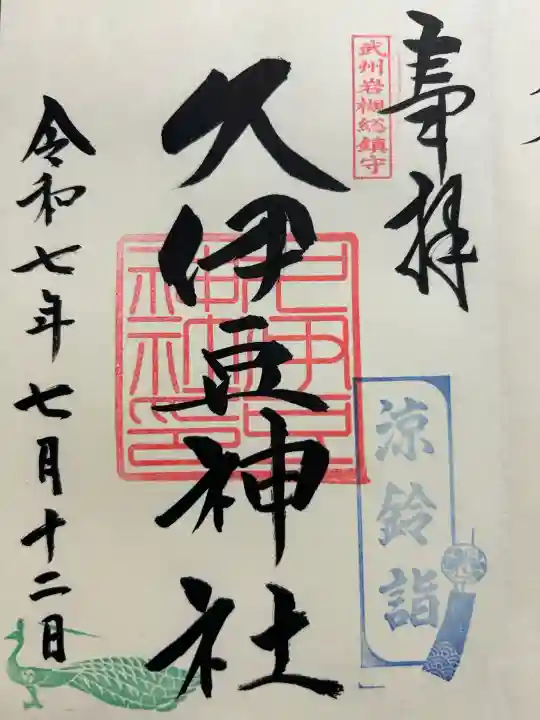 奉拝
武州岩槻総鎮守
涼鈴詣
久伊豆神社
令和七年七月十二日